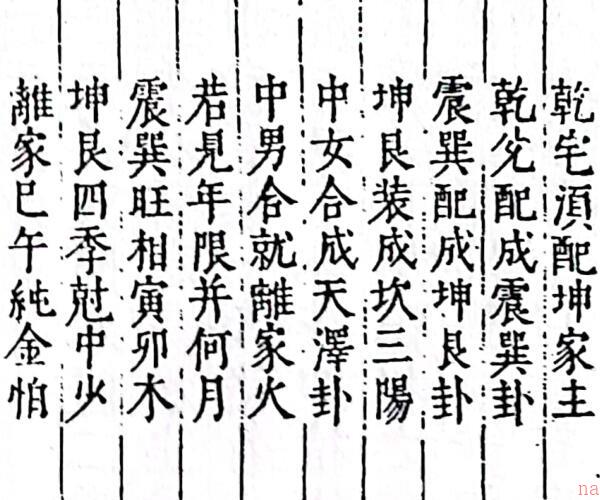 乾宅湏配坤家主
乾兊配成震巽卦
震巽配成坤艮卦
坤艮装成坎三陽
中女合成天澤卦
中男合就離家火
若見年限并何月
震巽旺相寅卯木
坤艮四季尅中少
離家巳午純金怕
na